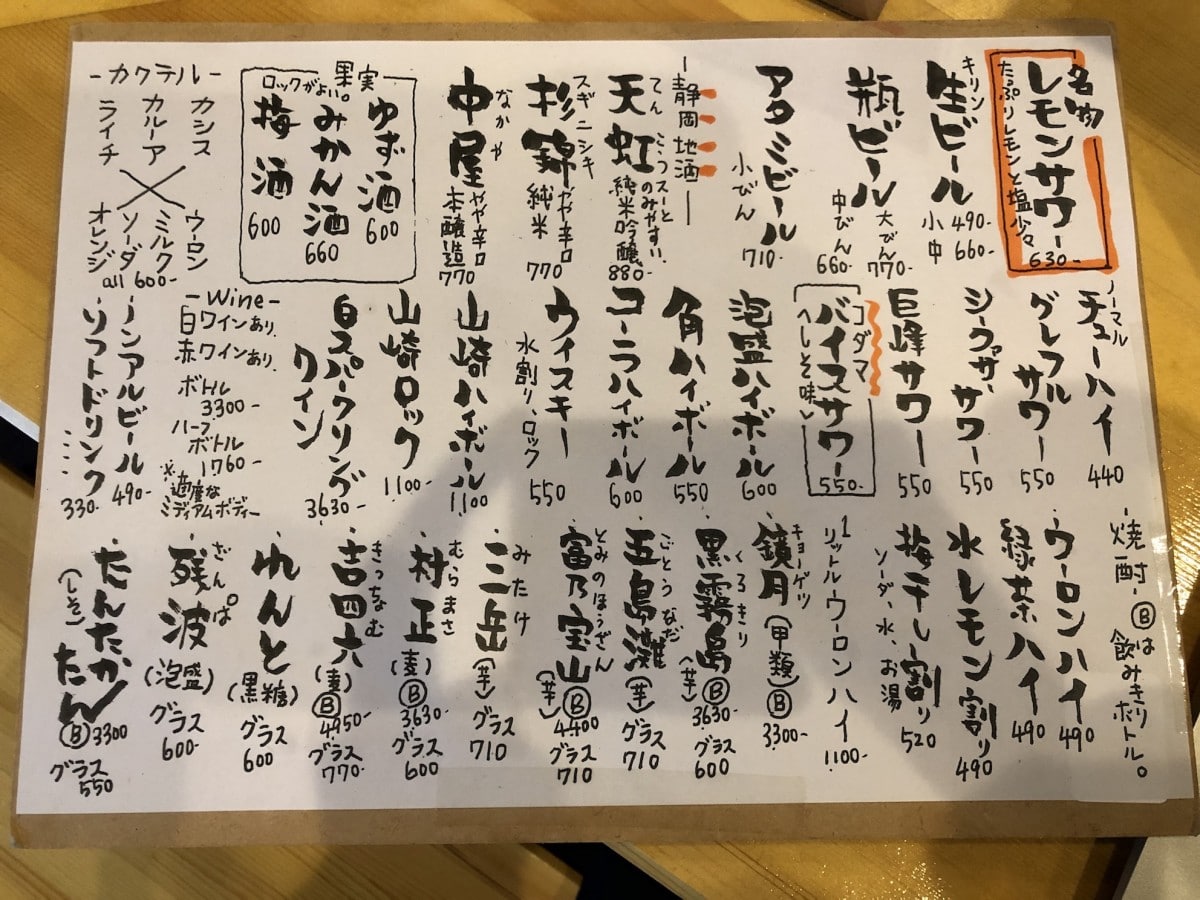 名物
レモンサワー
たっぷりレモンと塩少々
630-
キリン
生ビール
小 490-
中 660-
瓶ビール
大びん 770-
中びん 660-
アタミビール
小びん
710-
-静岡地酒-
てんこう
天虹
スーとのみやすい。
純米吟醸
880-
スギニシキ
杉錦
やや辛口
純米
770
なかや
中屋
やや辛口
本醸造
770
果実
ロックがよい。
ゆず酒
600
みかん酒
660
梅酒
600
-カクテル-
カシス
カルーア
ライチ
ウーロン
ミルク
ソーダ
オレンジ
all 600-
ノーマル
チューハイ
440
グレフルサワー
550
シークァサーサワー
550
巨峰サワー
550
コダマ
バイスサワー
しそ味
550-
泡盛ハイボール
600
角ハイボール
550
コーラハイボール
600
ウイスキー
水割り、ロック
550
山崎ハイボール
1,100
山崎ロック
1,100-
白スパークリングワイン
3630-
-Wine-
白ワインあり、
赤ワインあり、
ボトル
3300-
ハーフボトル
1760-
※適度な
ミディアムボディー
ノンアルビール
490-
ソフトドリンク
330-
・焼酎・Ⓑは飲みきりボトル。
ウーロンハイ
490
緑茶ハイ
490
水レモン割り
490
梅干し割り
ソーダ、水、お湯
520
1リットルウーロンハイ
1100-
キョーゲツ
鏡月(甲類)Ⓑ
3300-
くろきり
黒霧島(芋)
Ⓑ3630-
グラス600
ごとうなだ
五島灘(芋)
グラス710
とみのほうざん
富乃宝山(芋)
Ⓑ4400
グラス710
みたけ
三岳(芋)
グラス710
むらまさ
村正(麦)
Ⓑ3630-
グラス600
きっちょむ
吉四六(麦)
Ⓑ4950-
グラス770-
れんと(黒糖)
グラス600
ざんぱ
残波(泡盛)
グラス600-
たんたかたん
(しそ)
Ⓑ3300
グラス550